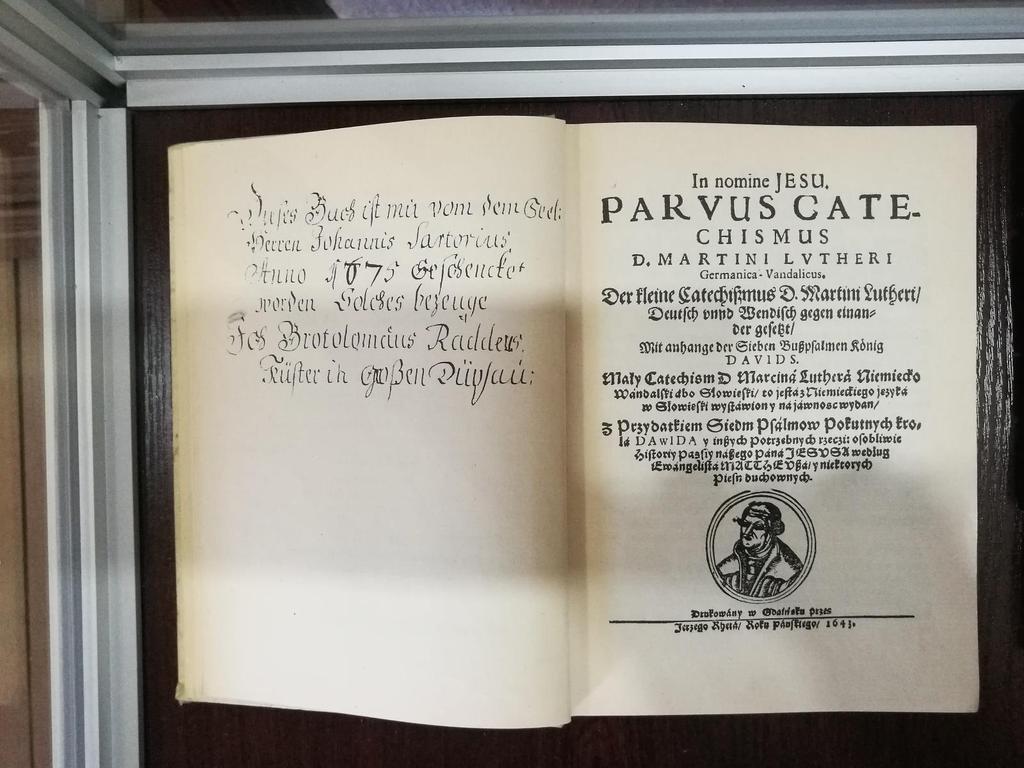 Dieses Buch ist mir vom dem Seel:
Herren Johannis Sartorius,
Anno 1675 Geschencket
worden Solches bezeuge
Ich Brotolomäus Rädders,
Küster in Großen Düpsau:
In nomine JESU.
PARVUS CATE-
CHISMUS
D. MARTINI LVTHERI
Germanica-Vandalicus.
Der kleine Catechißmus D. Martini Lutheri/
Deutsch vnnd Wendisch gegen einan-
der gesetzt/
Mit anhange der Sieben Bußpsalmen König
DAVIDS.
Mały Catechism D Marciná Lutherá Niemiecko
Wándalski ábo Słowieski/ to jestá z Niemieckiego języká
w Słowieski wystáwion y ná jáwnosc wydan/
z Przydatkiem Siedm Psálmow Pokutnych kro-
lá DAWIDA y inßych potrzebnych rzeczi: osobliwie
Historiy Paßiy náßego Páná JESVSA według
Ewángelistá MATTHEVßá/ y niektorych
Piesn duchownych.
Drukowány w Gdaińsku przes
Jerzego Rhetá/ Roku Páńskiego/ 1643.